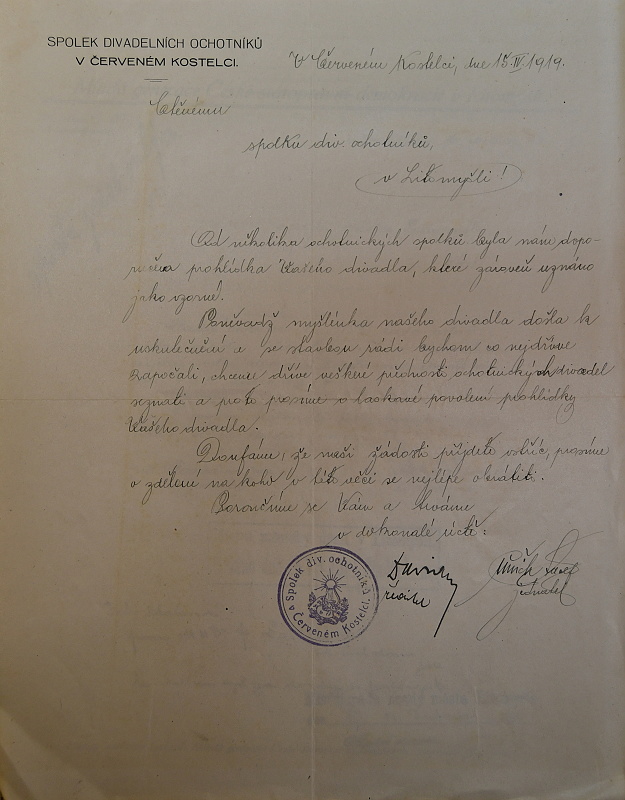 SPOLEK DIVADELNÍCH OCHOTNÍKŮ
V ČERVENÉM KOSTELCI.
V Červeném Kostelci, dne 15.IV.1919.
Ctěnému
spolku div. ochotníků,
v Litomyšli!
Od několika ochotnických spolků byla nám dopo-
ručena prohlídka Vašeho divadla, které zároveň uznáno
jako vzorné.
Poněvadž myšlénka našeho divadla došla k
uskutečnění a se stavbou rádi bychom co nejdříve
započali, chceme dříve veškeré přednosti ochotnických divadel
seznati a proto prosíme o laskavé povolení prohlídky
Vašeho divadla.
Doufáme, že naší žádosti přijdete vstříc, prosíme
o zdělení na koho v této věci se nejlépe obrátiti.
Poroučíme se Vám a trváme
v dokonalé úctě:
jednatel
Spolek div. ochotníků
v Červeném Kostelci.